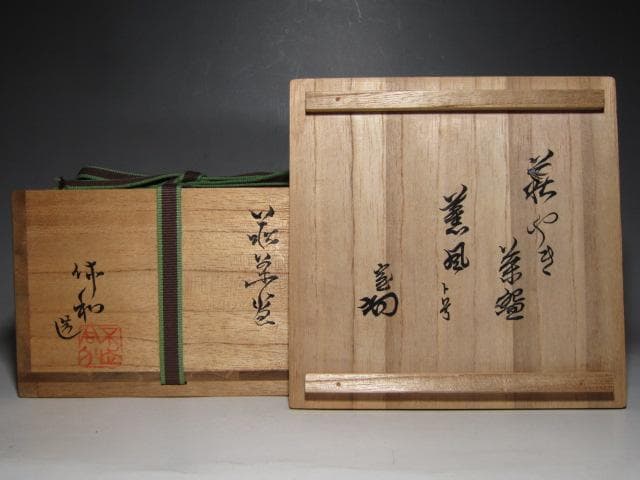 萩やき
茶碗
薫風ト号
萩茶碗
休和
造